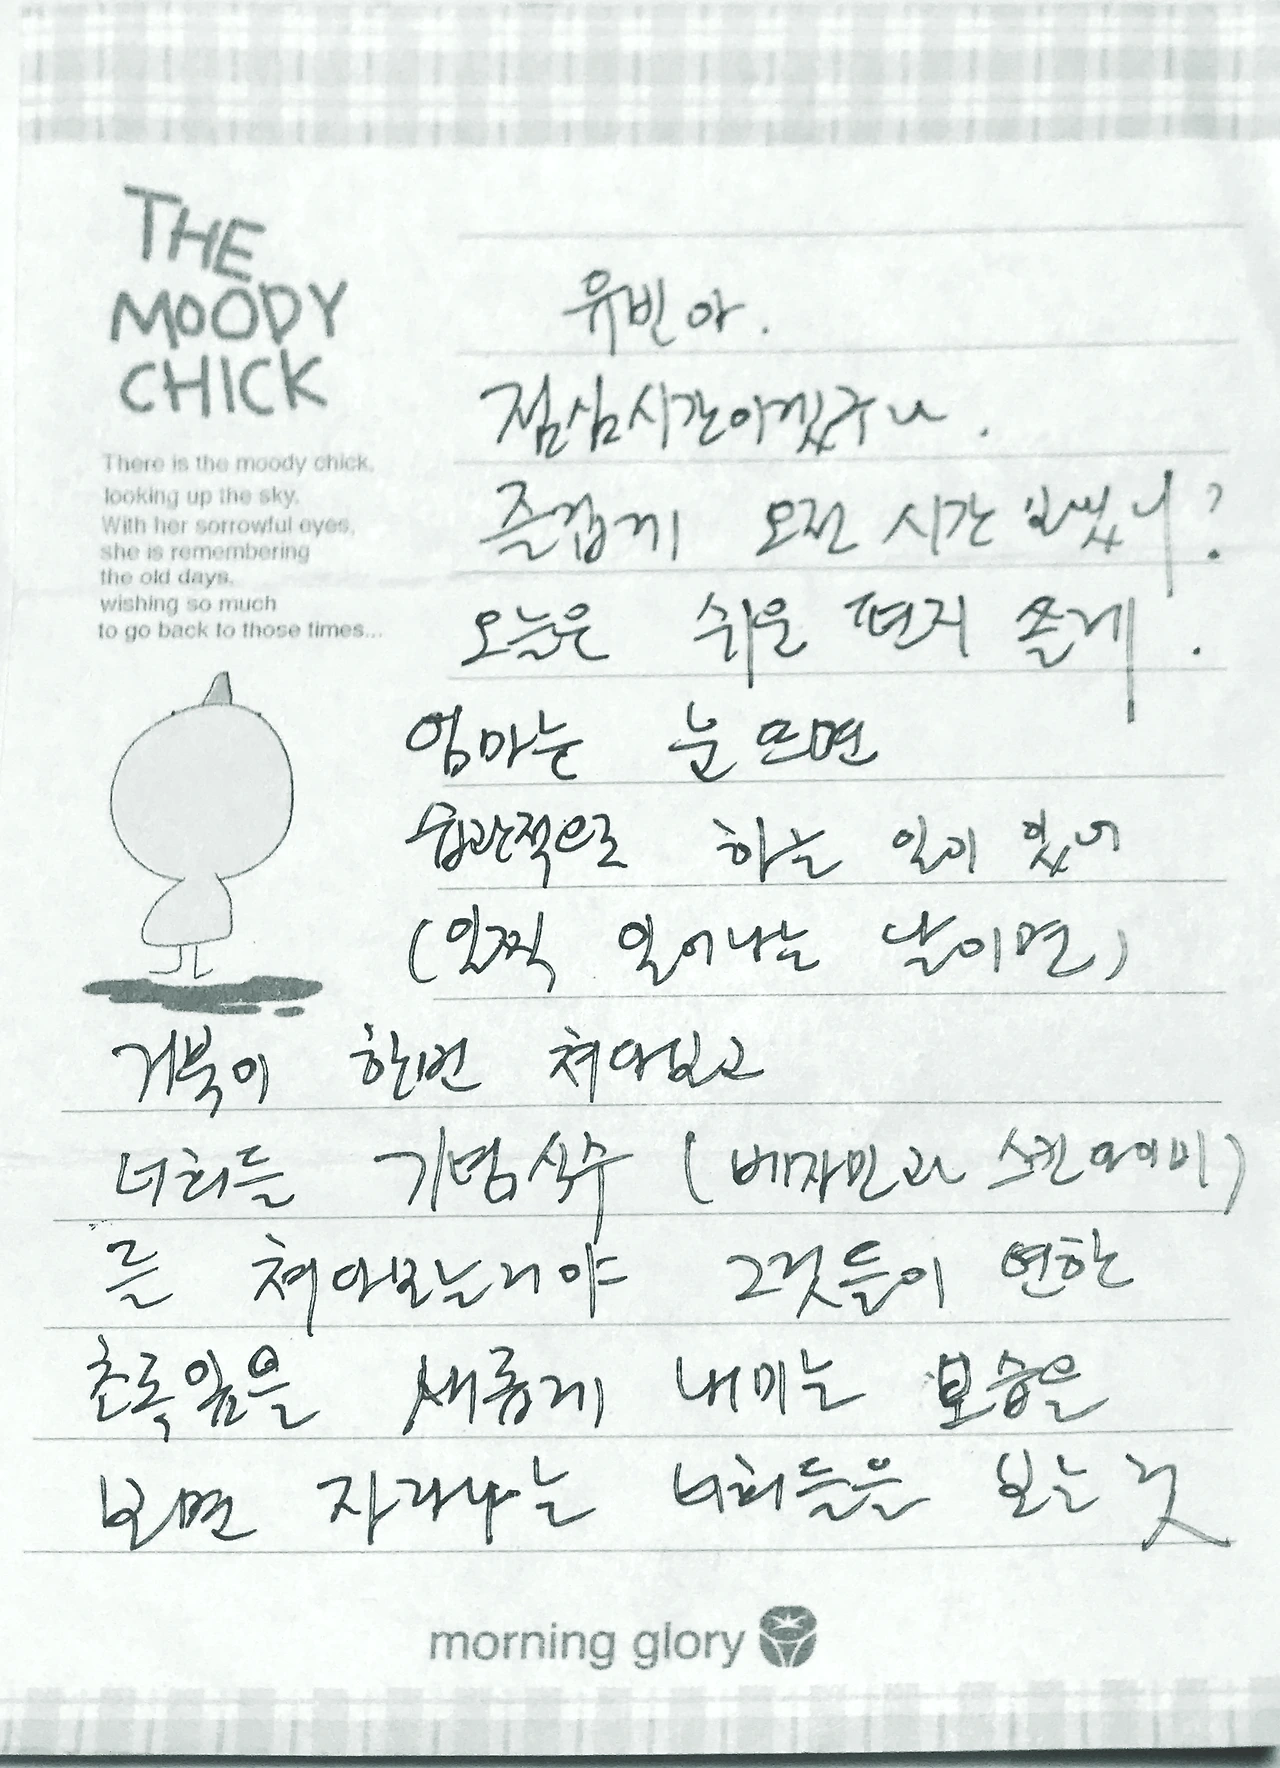 THE
MOODY
CHICK
There is the moody chick,
looking up the sky.
With her sorrowful eyes,
she is remembering
the old days,
wishing so much
to go back to those times...
유빈아.
점심시간이겠구나.
즐겁게 오전 시간 보냈니?
오늘은 쉬운 편지 쓸게.
엄마는 눈 뜨면
습관적으로 하는 일이 있어
(일찍 일어나는 날이면)
거북이 한번 쳐다보고
너희들 기념식수 (벤자민과 스킨 )
를 쳐다보는거야 그것들이 연한
초록잎을 새롭게 내미는 모습을
보면 자라나는 너희들을 보는 것
morning glory